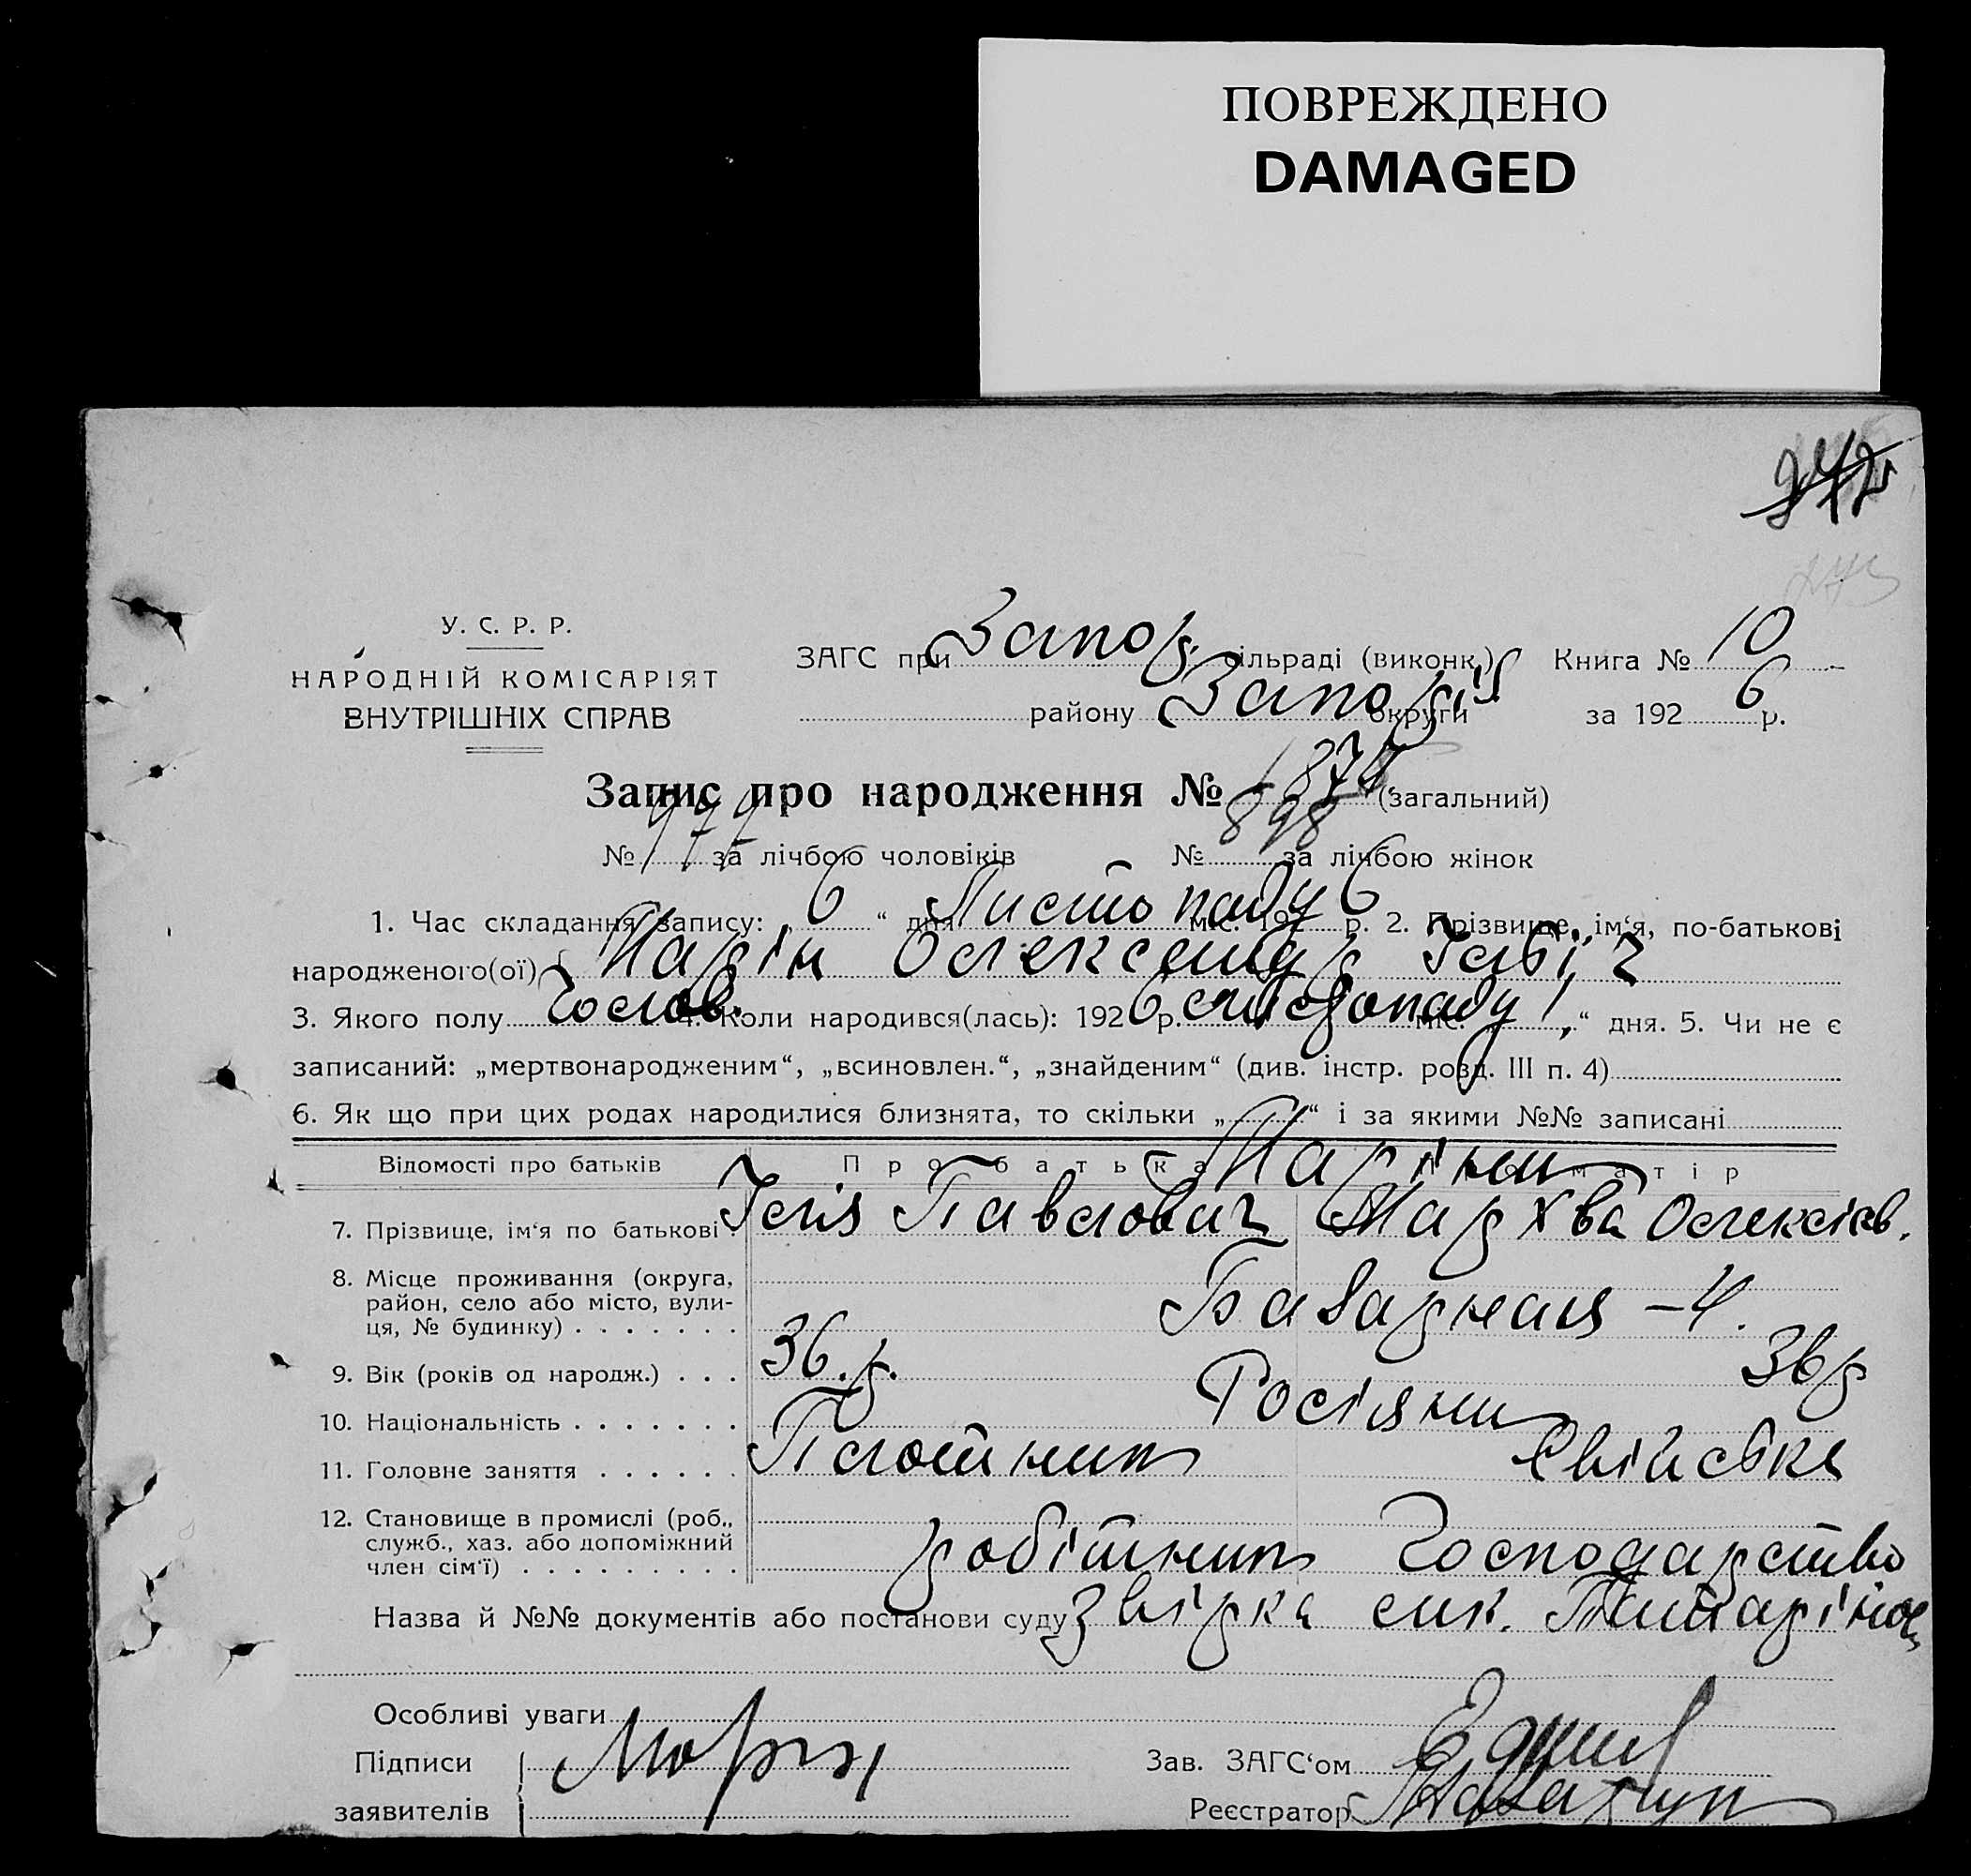 ПОВРЕЖДЕНО
DAMAGED
У. С. Р. Р.
НАРОДНІЙ КОМІСАРІЯТ
ВНУТРІШНІХ СПРАВ
ЗАГС при Запор. сільраді (виконк.) Книга № 10
району Запоріз округи за 1926 р.
Запис про народження № (загальний)
№ за лічбою чоловіків № 898 за лічбою жінок
1. Час складання запису: „ 6 “ дня Листопаду міс. 1926 р. 2. Прізвище, ім‘я, по-батькові
народженого(ої) Марін Олександр
3. Якого полу чолов. 4. Коли народився(лась): 1926 р. листопаду міс. „ 1 “ дня. 5. Чи не є
записаний: „мертвонародженим“, „всиновлен.“, „знайденим“ (див. інстр. розд. III п. 4)
6. Як що при цих родах народилися близнята, то скільки „ “ і за якими №№ записані
Відомості про батьків Про батька Про матір
Маріни
7. Прізвище, ім‘я по батькові Ілія Павлович Мархва Олексієв.
8. Місце проживання (округа,
район, село або місто, вули-
ця, № будинку) . . . . . . . Базарная – 4.
9. Вік (років од народж.) . . . 36. р. 36 р
10. Національність . . . . . . . Росіяни
11. Головне заняття . . . . . . Плотник Свійське
12. Становище в промислі (роб.,
служб., хаз. або допоміжний
член сім‘ї) . . . . . . . . . робітник господарство
Назва й №№ документів або постанови суду звірка
Особливі уваги
Підписи
заявителів
Зав. ЗАГС‘ом
Реєстратор